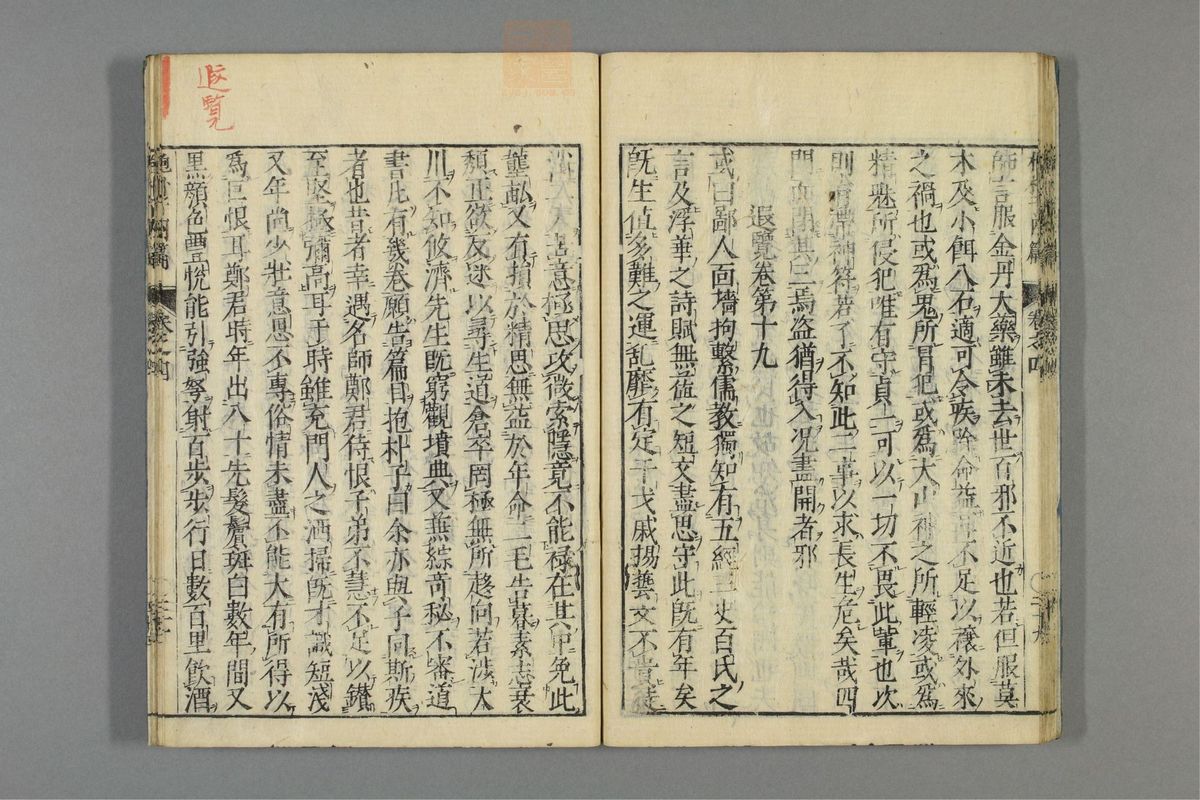 師言服金丹大藥雖未去世百邪不近也若但服草
木及小餌八石適可令疾除命益耳不足以禳外來
之禍也或爲鬼所冒犯或爲大山神之所輕凌或爲
精魅所侵犯唯有守眞一可以一切不畏此輩也次
則有帶神符若了不知此二事以求長生危矣哉四
門而閉其三焉盜猶得入况盡開者邪
遐覽卷第十九
或曰鄙人面墻拘繫儒教獨知有五經三史百氏之
言及浮華之詩賦無益之短文盡思守此旣有年矣
旣生值多難之運亂靡有定干戈戚揚藝文不貴徒
意極思攻微索隱竟不能禄在其中免此
壟畝又有損於精思無益於年命二毛告暮素志衰
頹正欲反迷以尋生道倉卒罔極無所趍向若涉大
川不知攸濟先生旣窮觀墳典又無綜奇秘不審道
書凡有幾卷願告篇目抱朴子曰余亦與子同斯疾
者也昔者幸遇名師鄭君待恨子弟不慧不足以鑚
至堅極彌高耳于時雖充門人之洒掃旣才識短淺
又年尚少壯意思不專俗情未盡不能大有所得以
爲巨恨耳鄭君時年出八十先髮鬢斑白數年間又
黒顏色豐悅能引強弩射百步步行日數百里飮酒
遐覽